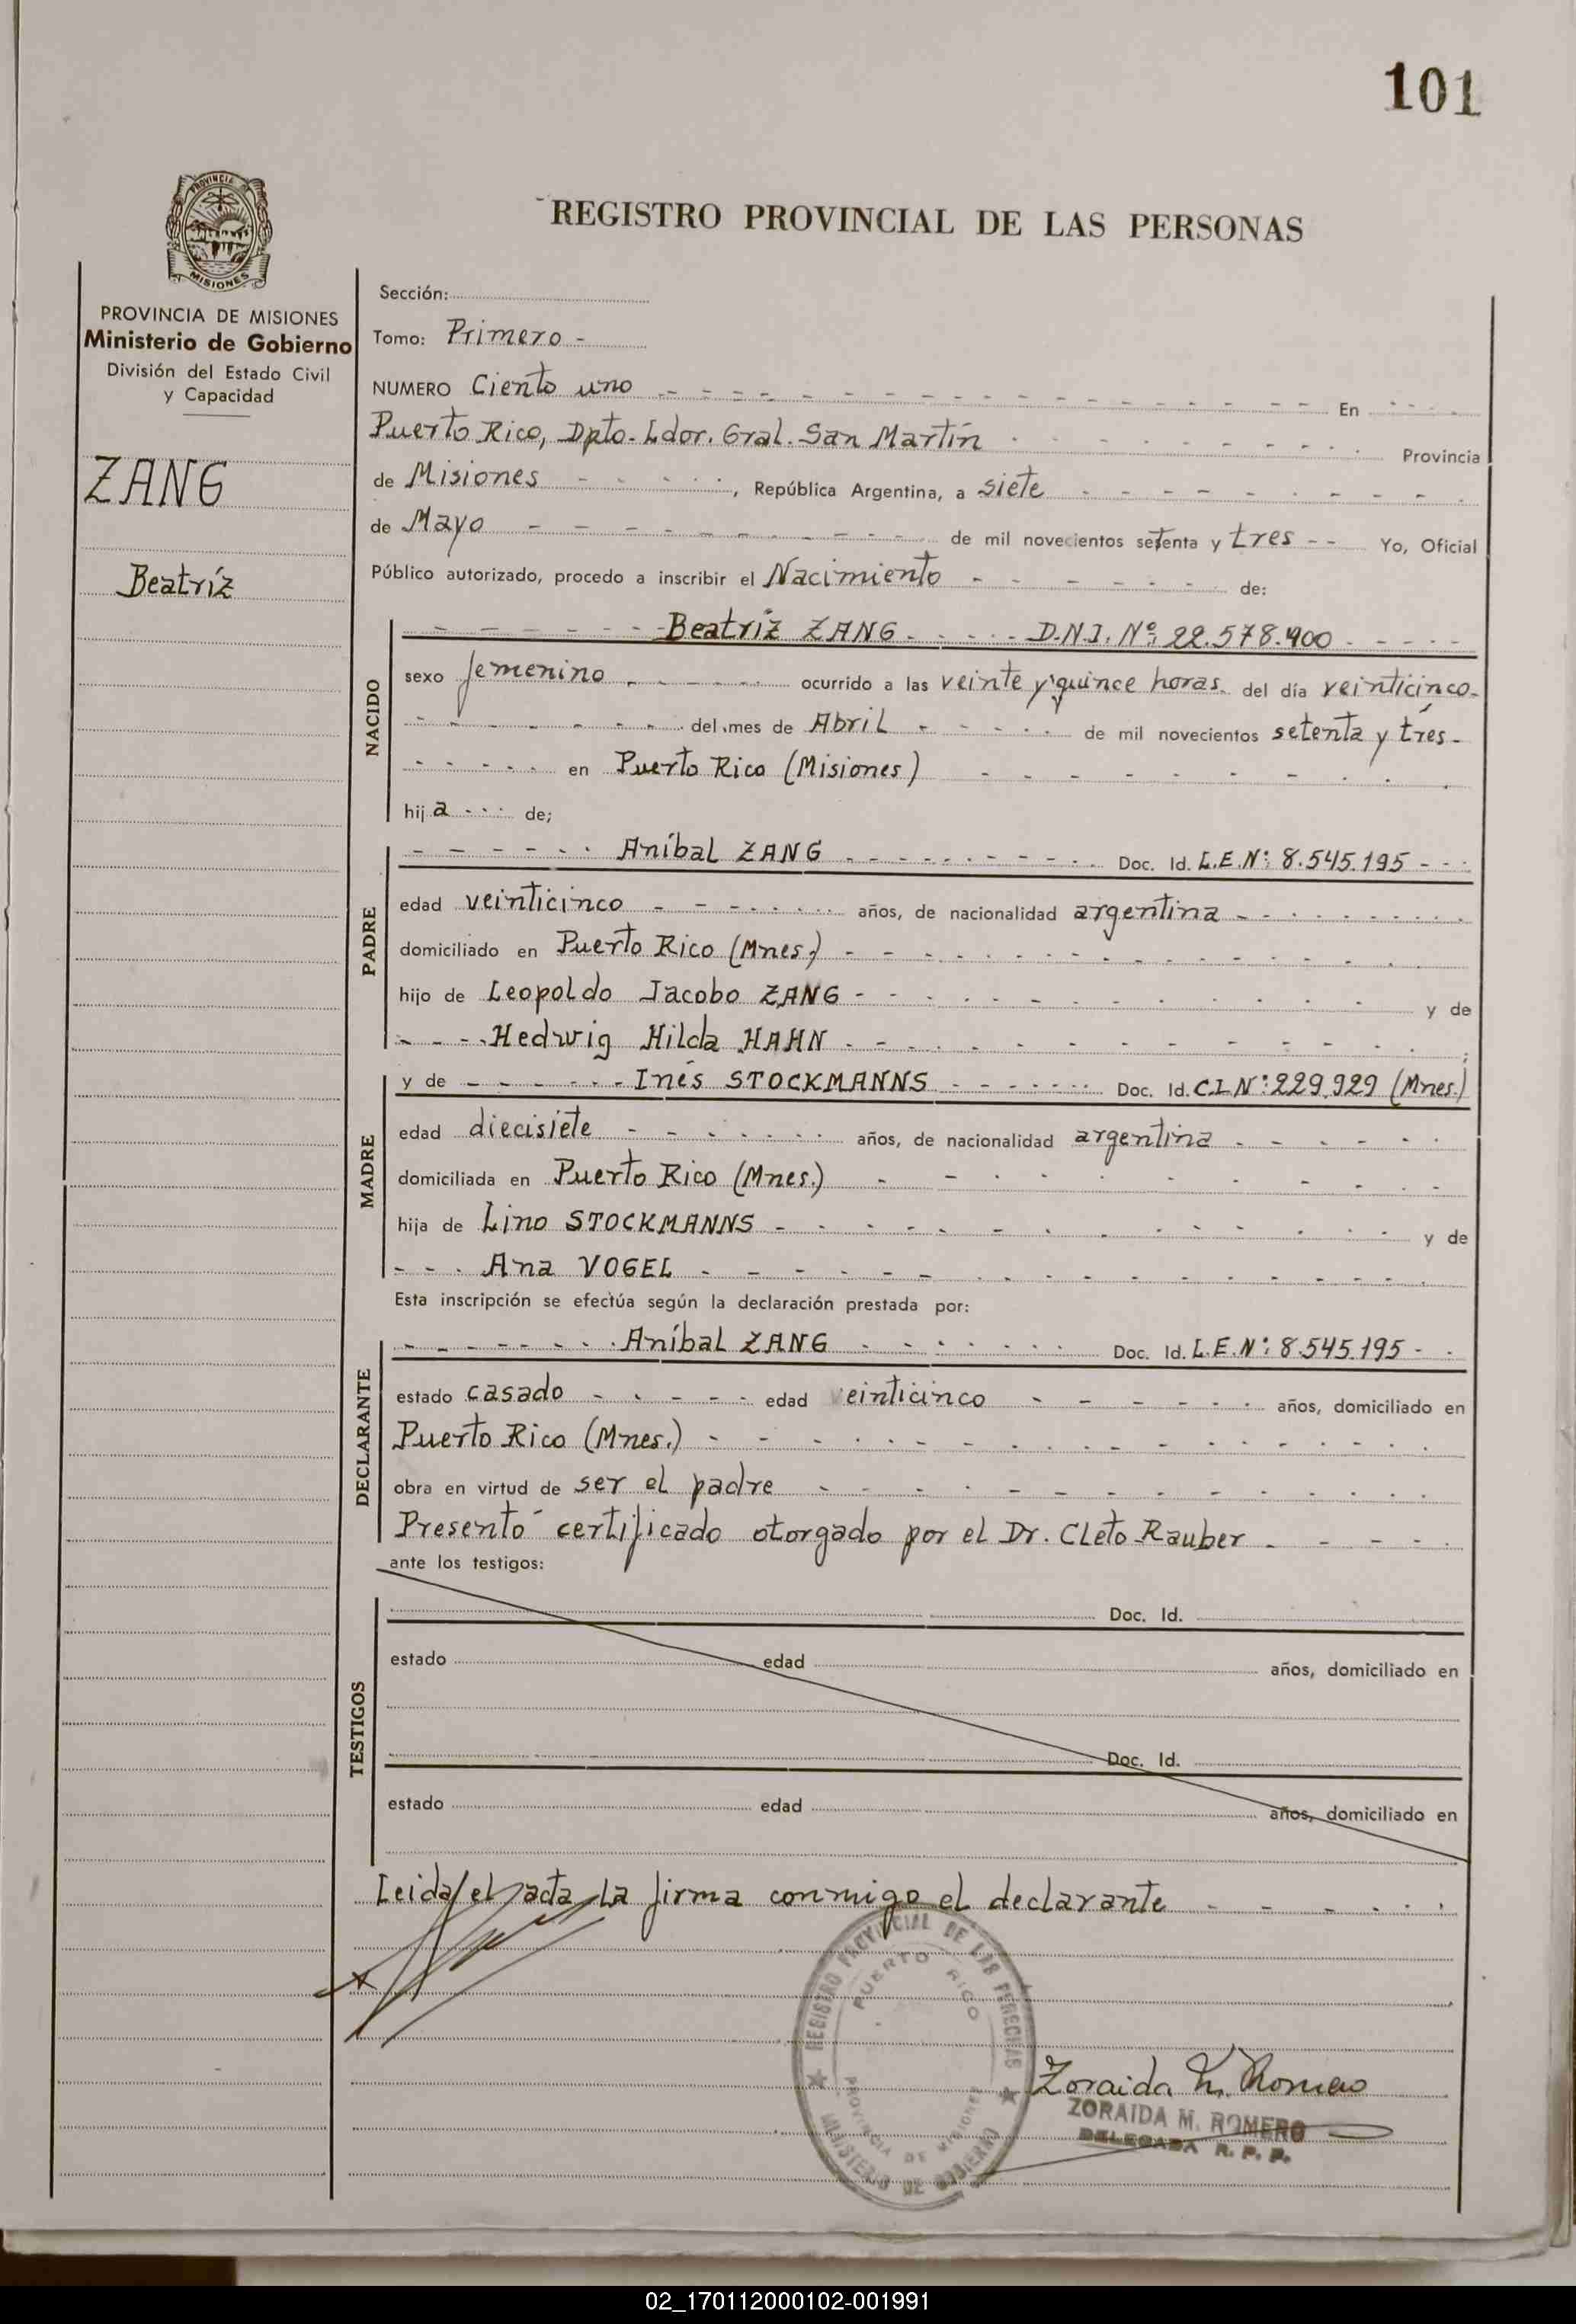 101
PROVINCIA
MISIONES
REGISTRO PROVINCIAL DE LAS PERSONAS
PROVINCIA DE MISIONES
Ministerio de Gobierno
División del Estado Civil
y Capacidad
ZANG
Beatríz
Sección:
Tomo: Primero -
NUMERO Ciento uno En
Puerto Rico, Dpto. Ldor. Gral. San Martín Provincia
de Misiones, República Argentina, a siete
de Mayo de mil novecientos setenta y tres Yo, Oficial
Público autorizado, procedo a inscribir el Nacimiento de:
NACIDO
Beatríz ZANG D.N.I. Nº: 22.578.900
sexo femenino ocurrido a las veinte y quince horas del día veinticinco
del mes de Abril de mil novecientos setenta y tres
en Puerto Rico (Misiones)
hija de;
PADRE
Aníbal ZANG Doc. Id. L.E. Nº: 8.545.195
edad veinticinco años, de nacionalidad argentina
domiciliado en Puerto Rico (Mnes.)
hijo de Leopoldo Jacobo ZANG y de
Hedwig Hilda HAHN ;
MADRE
y de Inés STOCKMANNS Doc. Id. C.I. Nº: 229.929 (Mnes.)
edad diecisiete años, de nacionalidad argentina
domiciliada en Puerto Rico (Mnes.)
hija de Lino STOCKMANNS y de
Ana VOGEL
Esta inscripción se efectúa según la declaración prestada por:
DECLARANTE
Aníbal ZANG Doc. Id. L.E. Nº: 8.545.195
estado casado edad veinticinco años, domiciliado en
Puerto Rico (Mnes.)
obra en virtud de ser el padre
Presentó certificado otorgado por el Dr. Cleto Rauber
ante los testigos:
TESTIGOS
Doc. Id.
estado edad años, domiciliado en
Doc. Id.
estado edad años, domiciliado en
Leida el acta la firma conmigo el declarante
REGISTRO PROVINCIAL DE LAS PERSONAS
PUERTO RICO
PROVINCIA DE MISIONES
MINISTERIO DE GOBIERNO
Zoraida M. Romero
ZORAIDA M. ROMERO
DELEGADA R. P. P.
02_170112000102-001991